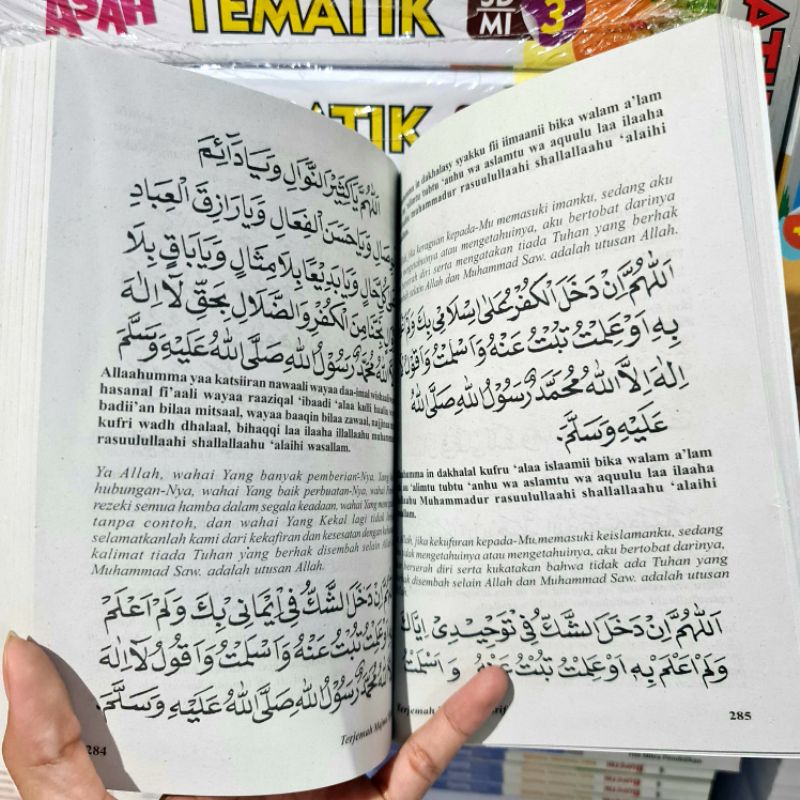 ASAH
TEMATIK
SD
MI
3
TIK
اَللّٰهُمَّ يَا كَثِيْرَ النَّوَالِ وَيَا دَآئِمَ
وَيَا حَسَنَ الْفِعَالِ وَيَا رَازِقَ الْعِبَادِ
حَالٍ وَيَا بَدِيْعًا بِلَا مِثَالٍ وَيَا بَاقٍ بِلَا
نَجِّنَا مِنَ الْكُفْرِ وَالضَّلَالِ بِحَقِّ لَآ اِلٰهَ
مُحَمَّدٌ رَسُوْلُ اللهِ صَلَّى اللهُ عَلَيْهِ وَسَلَّمَ
Allaahumma yaa katsiiran nawaali wayaa daa-imal
hasanal fi'aali wayaa raaziqal 'ibaadi 'alaa kulli
badii'an bilaa mitsaal, wayaa baaqin bilaa zawaal,
kufri wadh dhalaal, bihaqqi laa ilaaha illallaahu
rasuulullaahi shallallaahu 'alaihi wasallam.
Ya Allah, wahai Yang banyak pemberian-Nya,
hubungan-Nya, wahai Yang baik perbuatan-Nya, wahai
rezeki semua hamba dalam segala keadaan, wahai Yang
tanpa contoh, dan wahai Yang Kekal lagi tidak
selamatkanlah kami dari kekafiran dan kesesatan dengan
kalimat tiada Tuhan yang berhak disembah selain Allah
Muhammad Saw. adalah utusan Allah.
اِنْ دَخَلَ الشَّكُّ فِيْ اِيْمَانِيْ بِكَ وَلَمْ اَعْلَمْ
عَلِمْتُ تُبْتُ عَنْهُ وَاَسْلَمْتُ وَاَقُوْلُ لَآ اِلٰهَ
مُحَمَّدٌ رَسُوْلُ اللهِ صَلَّى اللهُ عَلَيْهِ وَسَلَّمَ.
284
Terjemah
in dakhalasy syakku fii iimaanii bika walam a'lam
'alimtu tubtu 'anhu wa aslamtu wa aquulu laa ilaaha
muhammadur rasuulullaahi shallallaahu 'alaihi
jika keraguan kepada-Mu memasuki imanku, sedang aku
mengetahuinya atau mengetahuinya, aku bertobat darinya
diri serta mengatakan tiada Tuhan yang berhak
selain Allah dan Muhammad Saw. adalah utusan Allah.
اَللّٰهُمَّ اِنْ دَخَلَ الْكُفْرُ عَلٰى اِسْلَامِيْ بِكَ
بِهِ اَوْ عَلِمْتُ تُبْتُ عَنْهُ وَاَسْلَمْتُ وَاَقُوْلُ
اِلٰهَ اِلَّا اللهُ مُحَمَّدٌ رَسُوْلُ اللهِ صَلَّى اللهُ
عَلَيْهِ وَسَلَّمَ.
in dakhalal kufru 'alaa islaamii bika walam a'lam
'alimtu tubtu 'anhu wa aslamtu wa aquulu laa ilaaha
Muhammadur rasuulullaahi shallallaahu 'alaihi
jika kekufuran kepada-Mu memasuki keislamanku, sedang
mengetahuinya atau mengetahuinya, aku bertobat darinya,
berserah diri serta kukatakan bahwa tidak ada Tuhan yang
disembah selain Allah dan Muhammad Saw. adalah utusan
اَللّٰهُمَّ اِنْ دَخَلَ الشَّكُّ فِيْ تَوْحِيْدِيْ اِيَّاكَ
وَلَمْ اَعْلَمْ بِهِ اَوْ عَلِمْتُ تُبْتُ عَنْهُ وَاَسْلَمْتُ
Terjemah
285